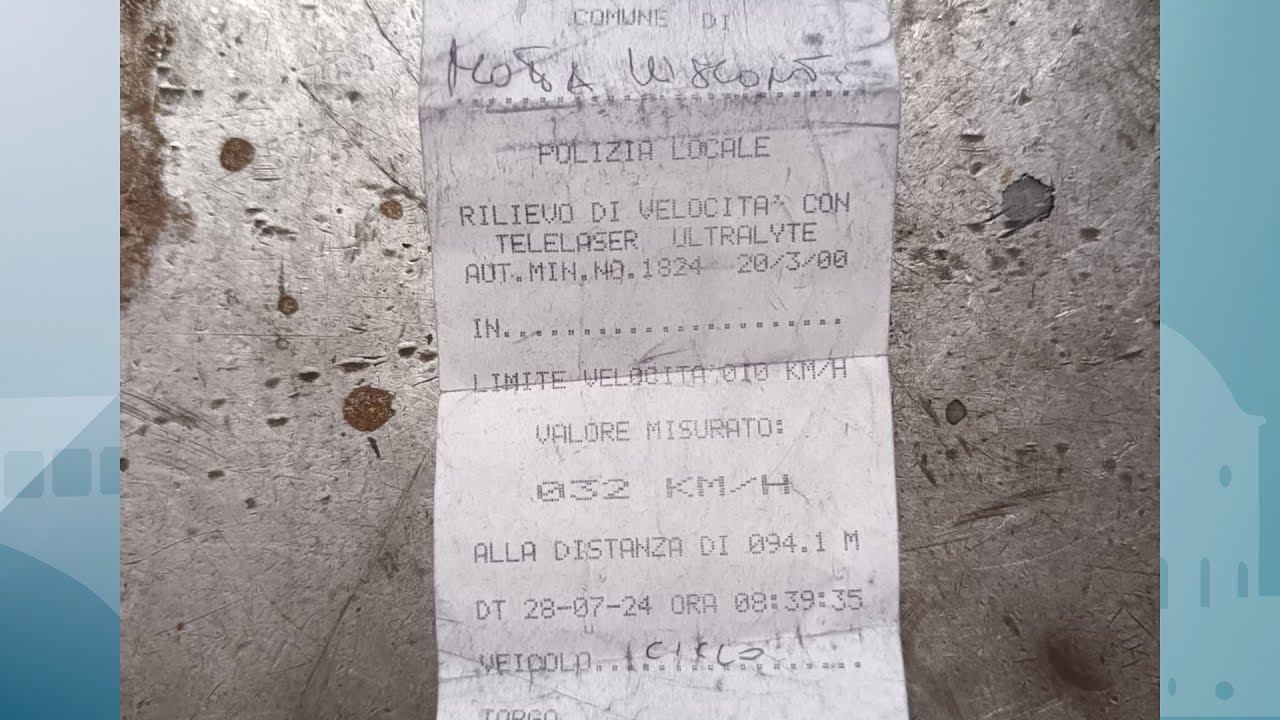 COMUNE DI
MOTTA VISCONTI
POLIZIA LOCALE
RILIEVO DI VELOCITA' CON
TELELASER ULTRALYTE
AUT.MIN.NO.1824 20/3/00
IN......................
LIMITE VELOCITA'010 KM/H
VALORE MISURATO:
032 KM/H
ALLA DISTANZA DI 094.1 M
DT 28-07-24 ORA 08:39:35
VEICOLO
TARGO